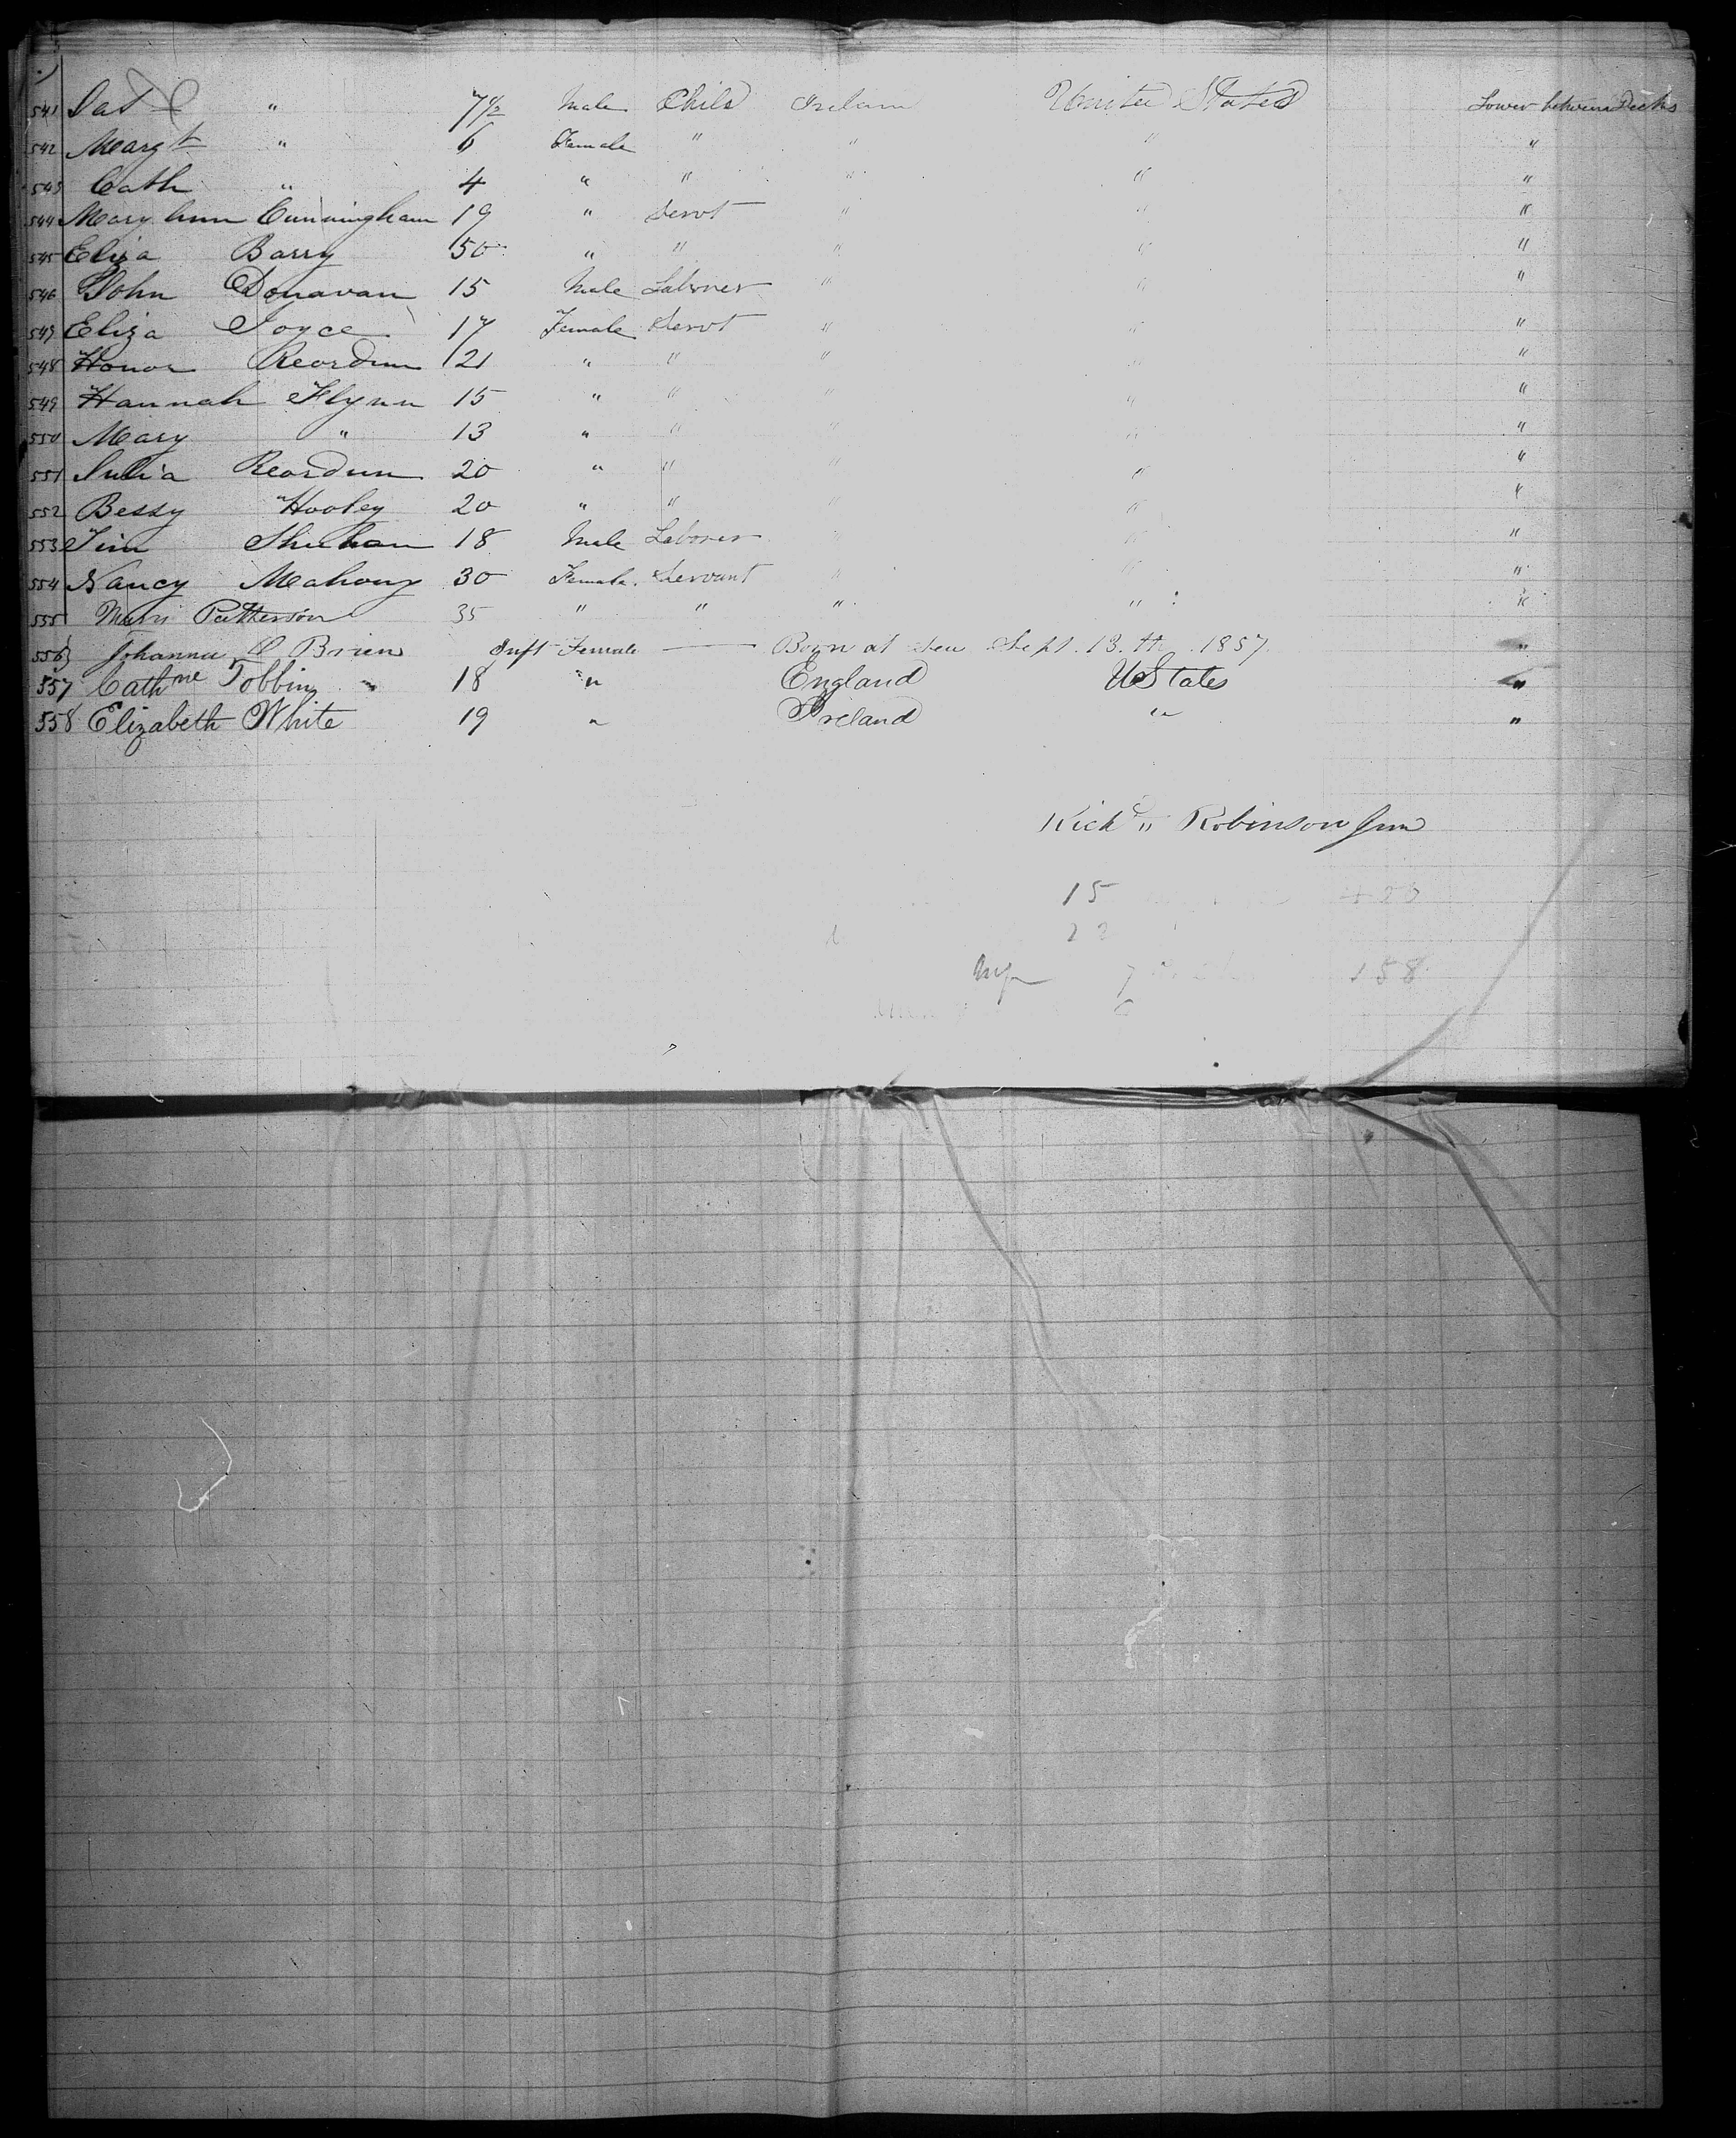 541 Dad l " 7 1/2 Male Child Ireland United States Lower between Decks
542 Margt " 6 Female " " " "
543 Cath " 4 " " " " "
544 Mary Ann Cunningham 19 " Servt " " "
545 Eliza Barry 50 " " " " "
546 John Donavan 15 Male Laborer " " "
547 Eliza Joyce 17 Female Servt " " "
548 Honor Reordun 21 " " " " "
549 Hannah Flynn 15 " " " " "
550 Mary " 13 " " " " "
551 Julia Reordun 20 " " " " "
552 Bessy Hooley 20 " " " " "
553 Jim Sheehan 18 Male Laborer " " "
554 Nancy Mahony 30 Female Servant " " "
555 Patterson 35 " " " " "
556 Johanna O Brien Inft Female — Born at Sea Sept. 13.th 1857 "
557 Cathne Tobbin 18 " England U States "
558 Elizabeth White 19 " Ireland " "
Richd " Robinson Jun
15
22
7 158
6